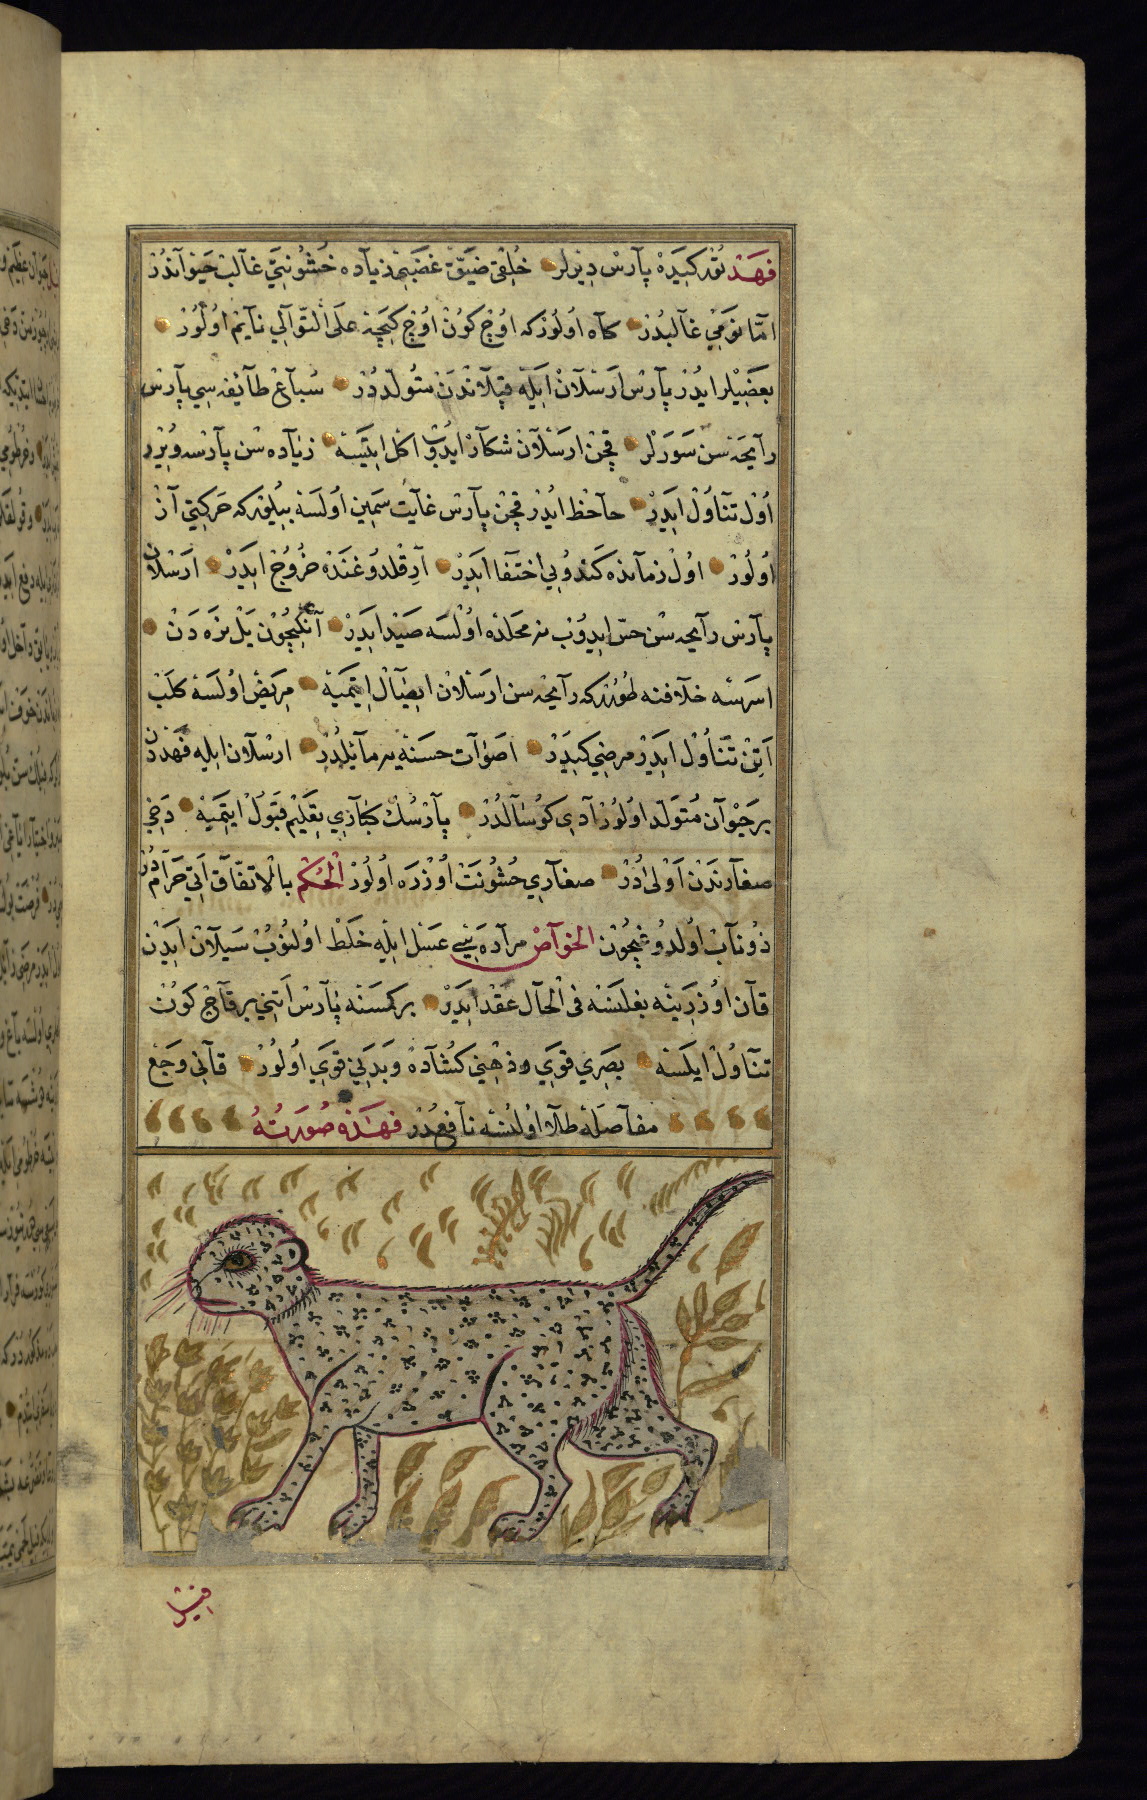 فهد تورکیده پارس دیرلر خلقی ضیق غضبی زیاده خشونتی غالب حیواندر
اما نومی غالبدر کاه اولور که اوچ کون اوچ کیجه علی التوالی نایم اولور
بعضیلر ایدر پارس ارسلان ایله قپلاندن متولددر سباع طائفه سی پارس
رایحه سن سورلر قچن ارسلان شکار ایدوب اکل ایتسه زیاده سن پارسه ویرر
اول تناول ایدر جاحظ ایدر قچن پارس غایت سمین اولسه بیلور که حرکتی آز
اولور اول زمانده کندویی اختفا ایدر آرقلدوغنده خروج ایدر ارسلان
پارس رایحه سن حس ایدوب نه محلده اولسه صید ایدر آنکیچون یل نره دن
اسرسه خلافنه طورر که رایحه سن ارسلان ایصال ایتمیه مریض اولسه کلب
اتن تناول ایدر مرضی کیدر اصوات حسنه یه مایلدر ارسلان ایله فهددن
بر حیوان متولد اولور آدی کوسالدر پارسک کباری تعلیم قبول ایتمیه دخی
صغارندن اولی در صغاری خشونت اوزره اولور الحکم بالاتفاق اتی حرامدر
ذوناب اولدوغیچون الخواص مراره سنی عسل ایله خلط اولنوب سیلان ایدن
قان اوزرینه بغلسه فی الحال عقد ایدر بر کمسنه پارس اتنی بر قاچ کون
تناول ایلسه بصری قوی و ذهنی کشاده و بدنی قوی اولور قانی وجع
مفاصله طلا اولنسه نافعدر فهذه صورته